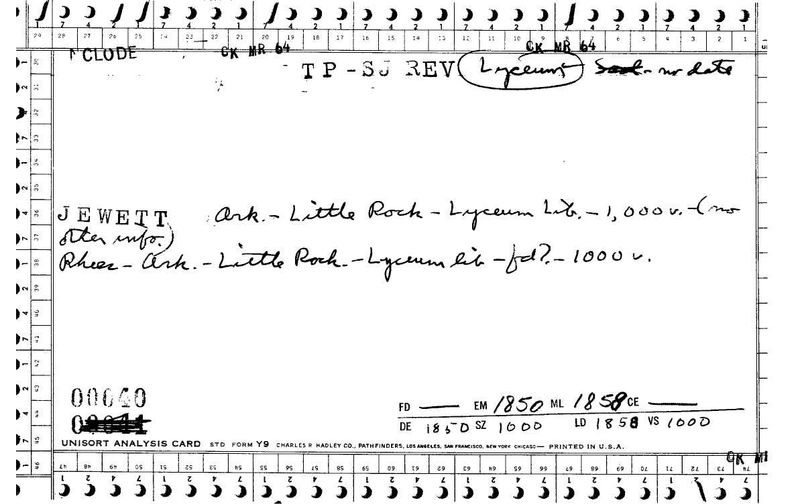 29 28 27 26 25 24 23 22 21 20 19 18 17 16 15 14 13 12 11 10 9 8 7 6 5 4 3 2 1
CLODE CK MR 64 CK MR 64
TP-SJ REV Lyceums - no date
JEWETT Ark. - Little Rock - Lyceum Lib. - 1,000 v. - (no
other info.)
Rhees - Ark. - Little Rock. - Lyceum lib - fd?. - 1000 v.
00040
FD — EM 1850 ML 1858 CE —
DE 1850 SZ 1000 LD 1858 VS 1000
UNISORT ANALYSIS CARD STD FORM Y9 CHARLES R HADLEY CO., PATHFINDERS, LOS ANGELES, SAN FRANCISCO, NEW YORK CHICAGO — PRINTED IN U.S.A.